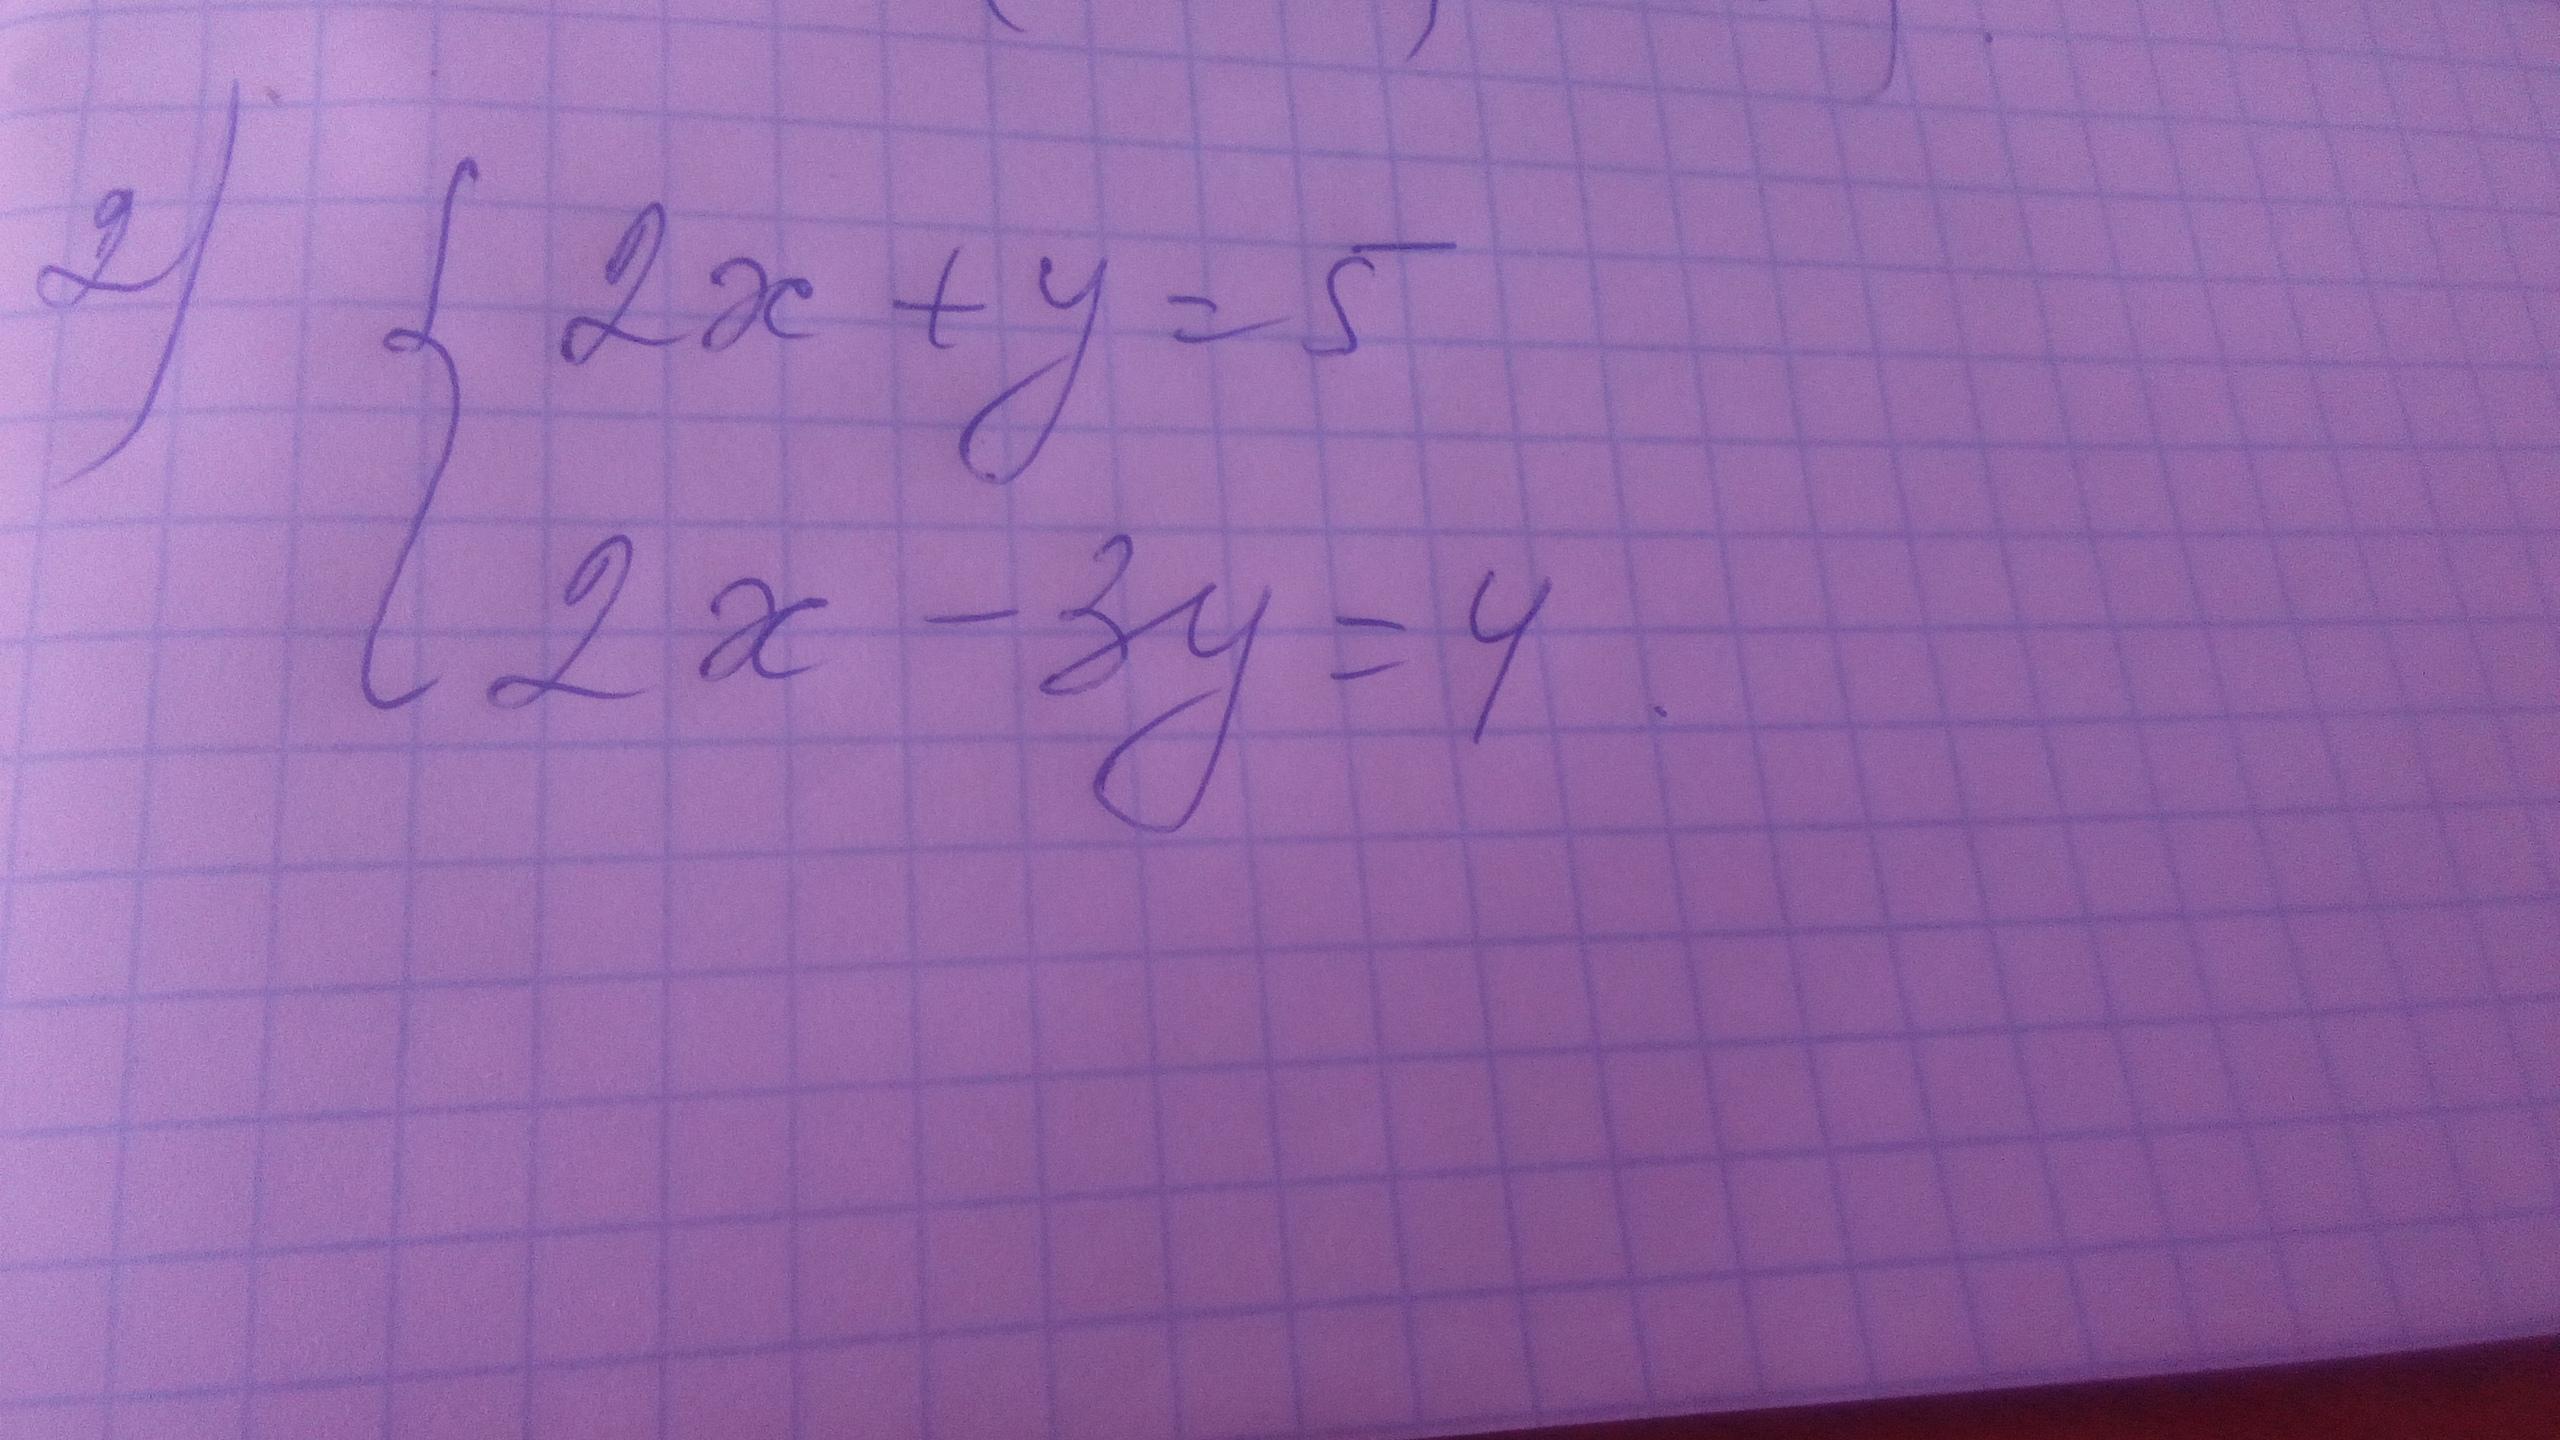 2) { 2x + y = 5
2x - 3y = 4.